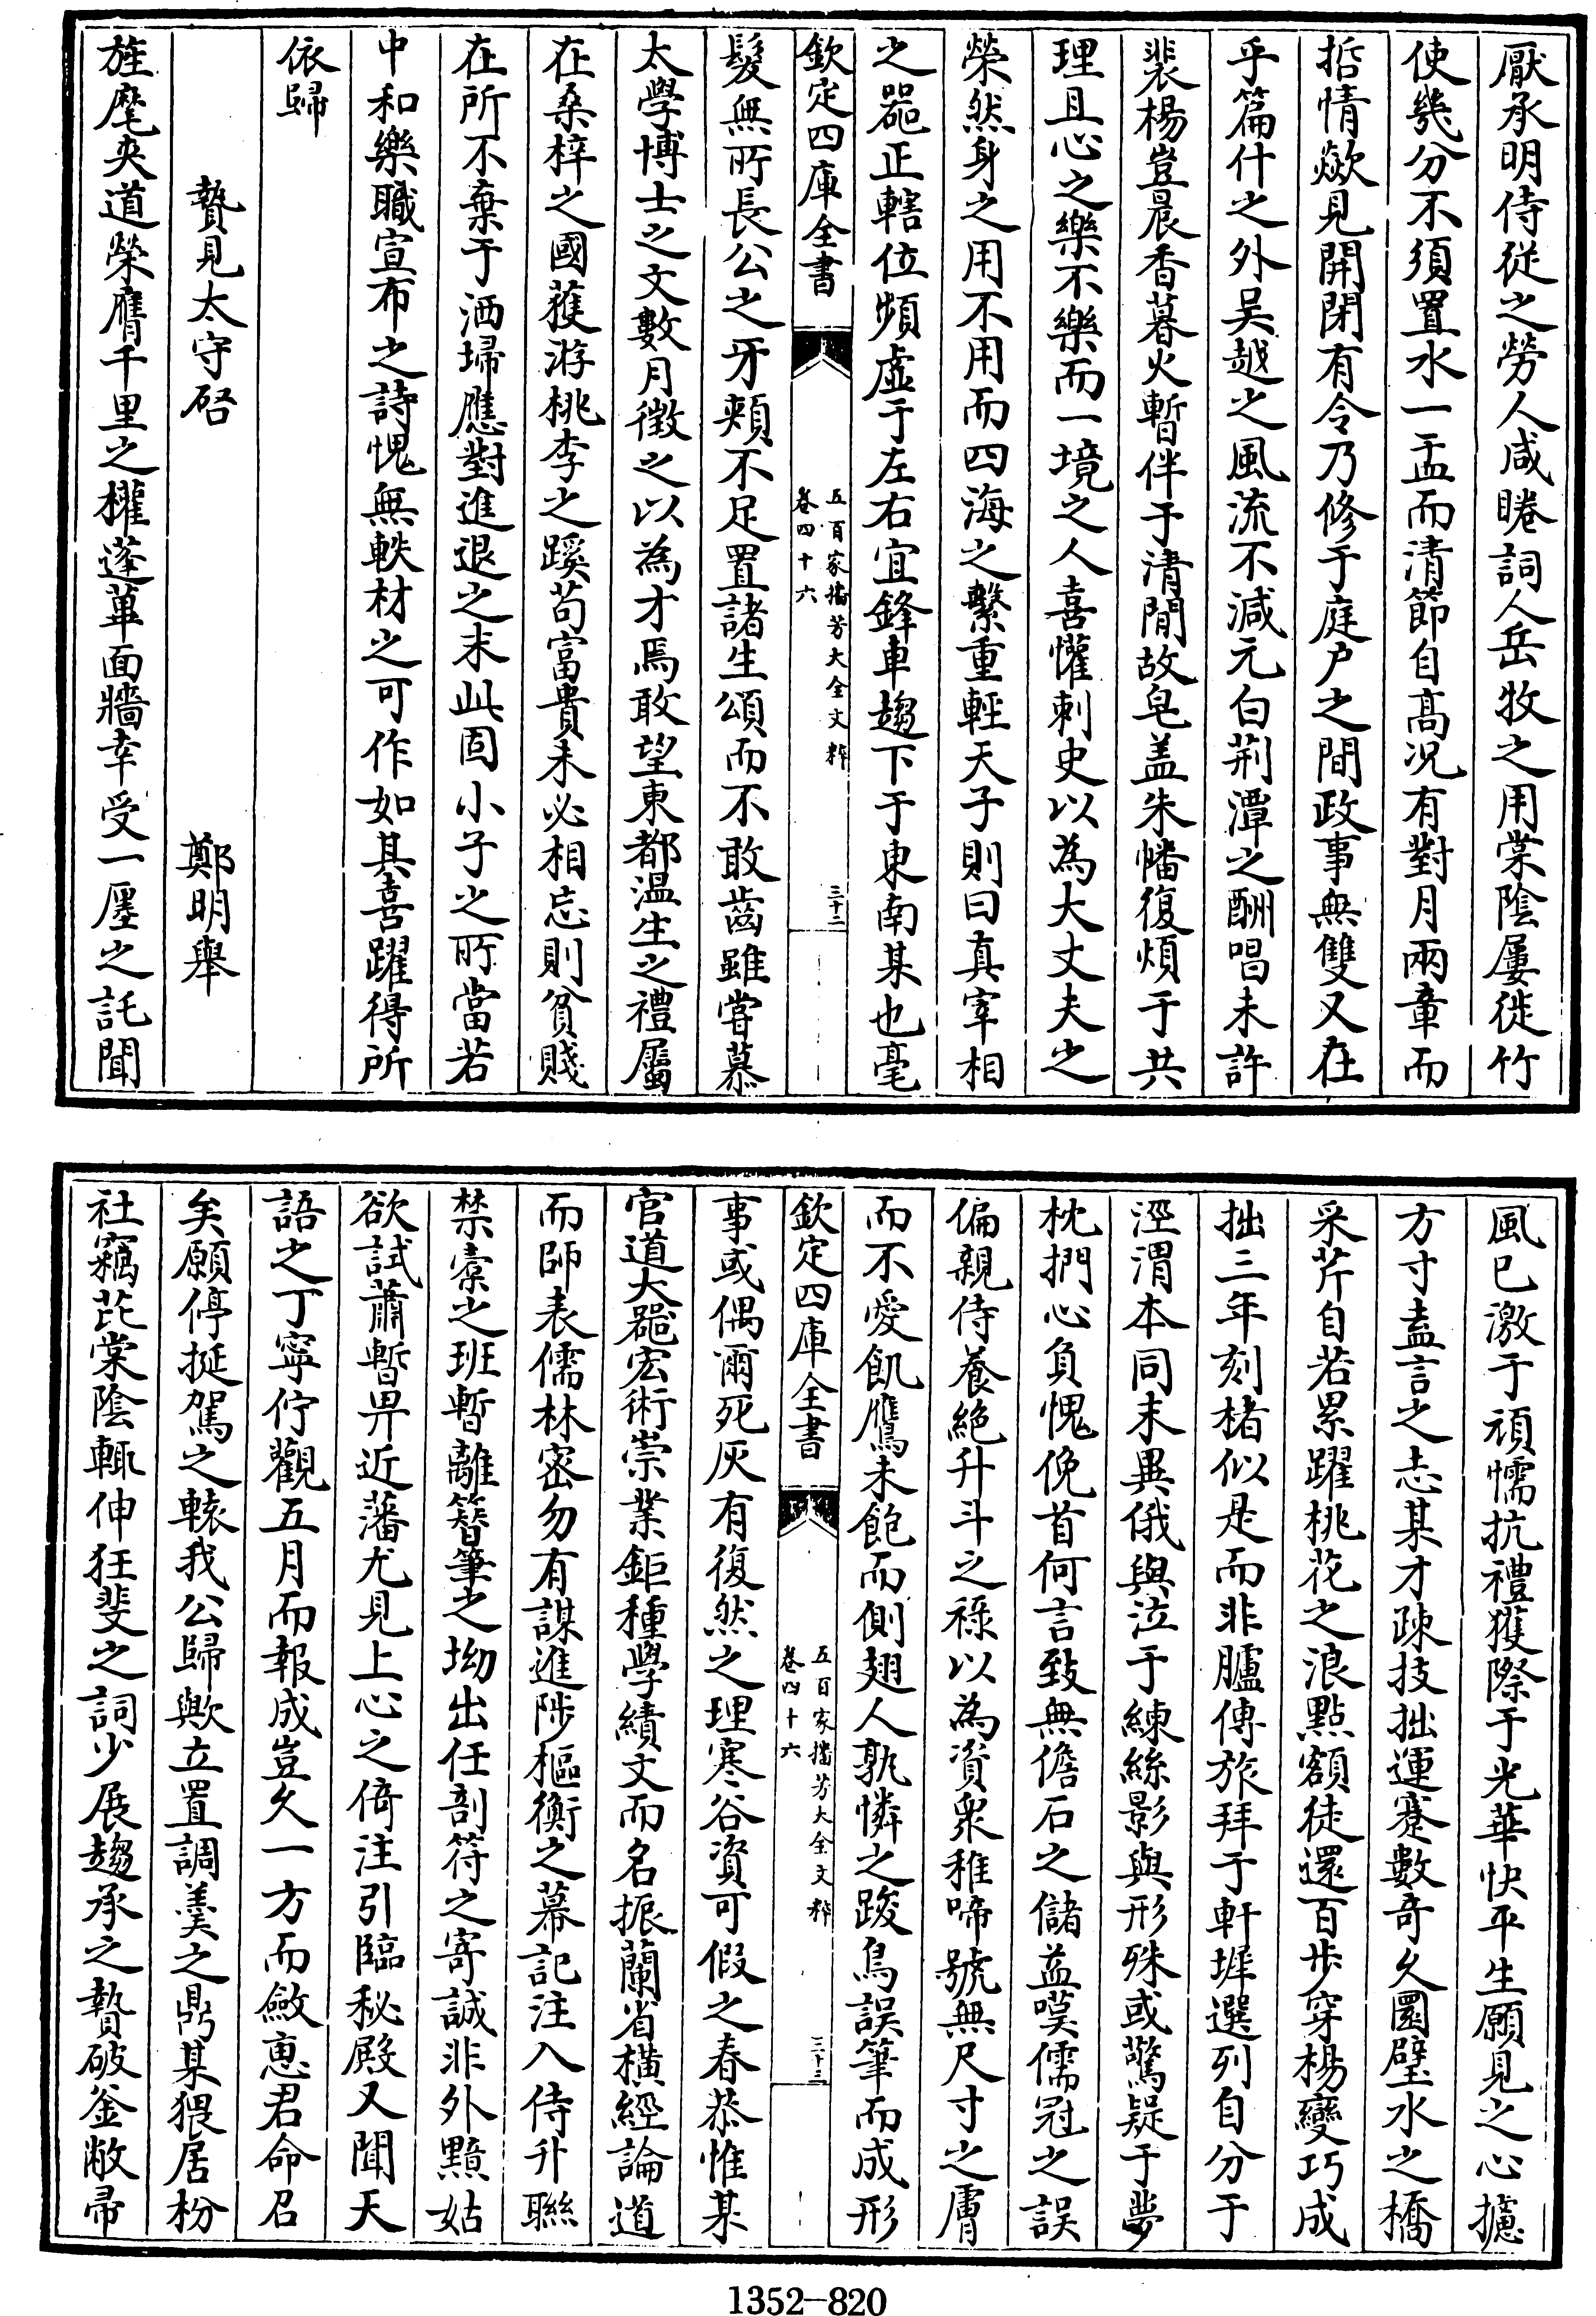 厭承明侍從之勞人咸睠詞人岳牧之用棠陰屢徙竹
使幾分不須置水一盂而清節自高况有對月兩章而
哲情歘見開閉有令乃修于庭户之間政事無雙又在
乎篇什之外吴越之風流不減元白荆潭之酬唱未許
裴楊豈晨香暮火暫伴于清閒故皂盖朱幡復煩于共
理且心之樂不樂而一境之人喜懼刺史以為大丈夫之
榮然身之用不用而四海之繫重輕天子則曰真宰相
之器正轄位頻虛于左右宜鋒車趨下于東南某也毫
欽定四庫全書
五百家播芳大全文粹
卷四十六
三十二
髮無所長公之牙頰不足置諸生頌而不敢齒雖嘗慕
太學博士之文數月徵之以為才焉敢望東都温生之禮屬
在桑梓之國獲游桃李之蹊苟富貴未必相忘則貧賤
在所不棄于洒埽應對進退之末此固小子之所當若
中和樂職宣布之詩愧無軼材之可作如其喜躍得所
依歸
贄見太守啓
鄭明舉
旌麾夾道榮膺千里之權蓬蓽面牆幸受一廛之託聞
風已激于頑懦抗禮獲際于光華快平生願見之心攄
方寸盍言之志某才疎技拙運蹇數奇久圜璧水之橋
采芹自若累躍桃花之浪點額徒還百步穿楊變巧成
拙三年刻楮似是而非臚傳旅拜于軒墀選列自分于
涇渭本同末異俄與泣于練絲影與形殊或驚疑于夢
枕捫心負愧俛首何言致無儋石之儲益嘆儒冠之誤
偏親侍養絶升斗之祿以為資衆稚啼號無尺寸之膚
而不愛飢鷹未飽而側翅人孰憐之跛鳥誤筆而成形
欽定四庫全書
五百家播芳大全文粹
卷四十六
三十三
事或偶爾死灰有復然之理寒谷資可假之春恭惟某
官道大器宏術崇業鉅種學績文而名振蘭省橫經論道
而師表儒林密勿有謀進陟樞衡之幕記注入侍升聯
禁橐之班暫離簪筆之坳出任剖符之寄誠非外黥姑
欲試蕭暫畀近藩尤見上心之倚注引臨秘殿又聞天
語之丁寧佇觀五月而報成豈久一方而斂惠君命召
矣願停挺駕之轅我公歸歟立置調羹之鼎某猥居枌
社竊芘棠陰輒伸狂斐之詞少展趨承之贄破釜敝帚
1352—820